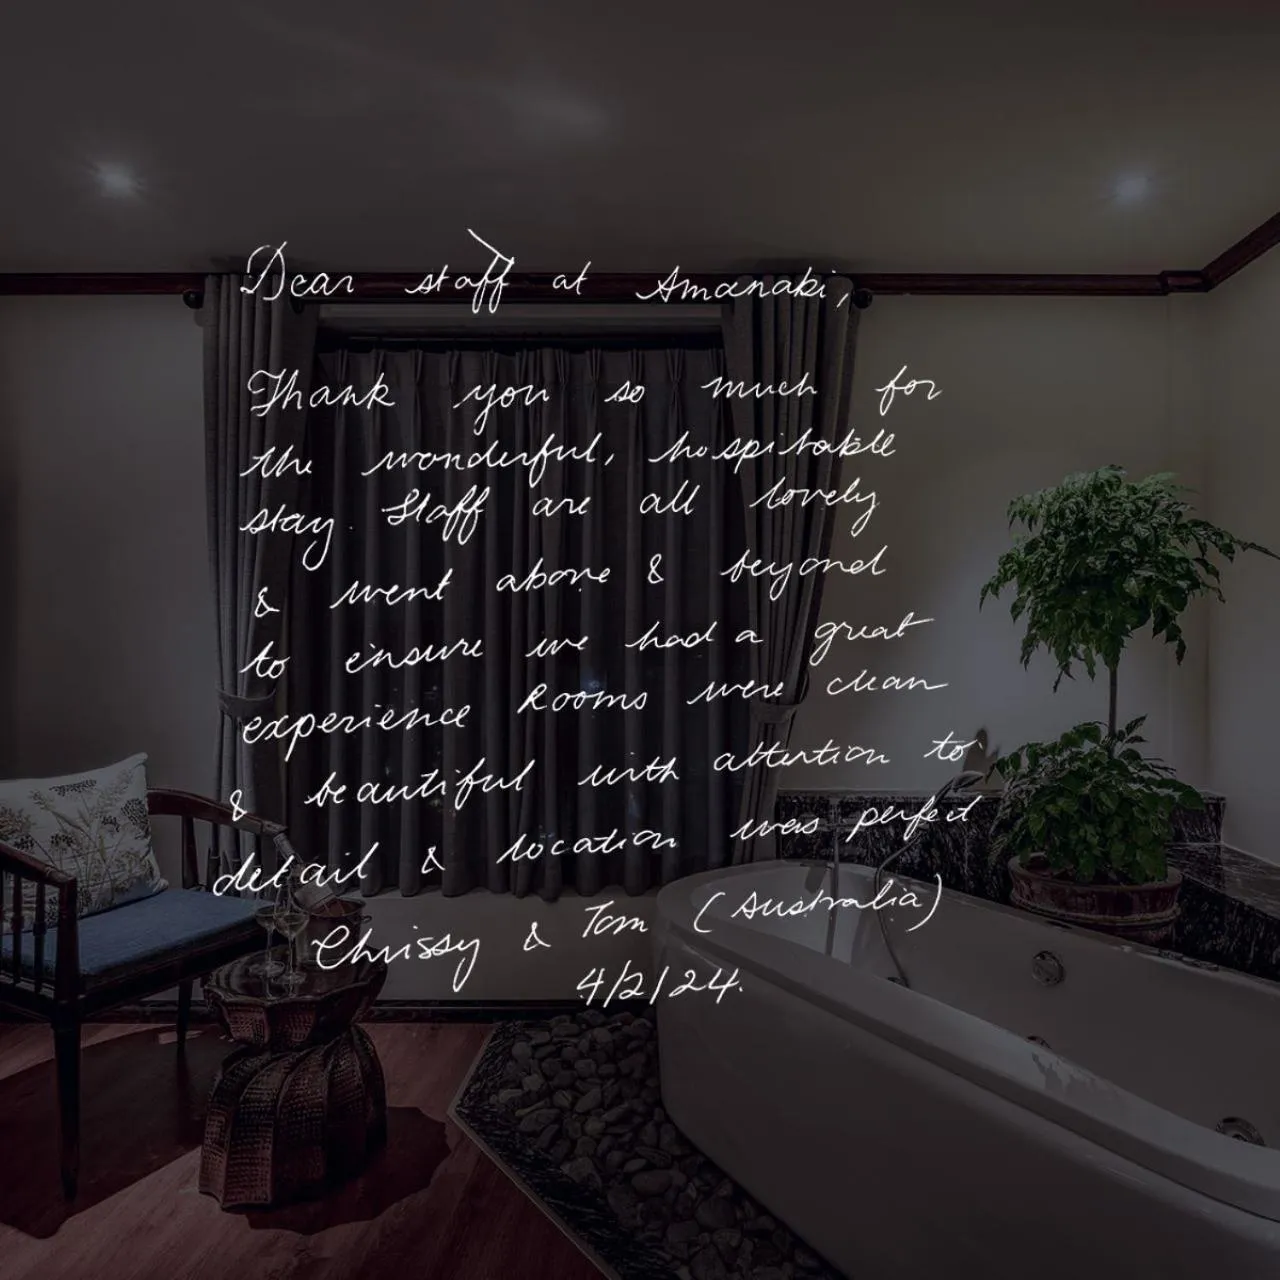 Dear staff at Amanaki,
Thank you so much for
the wonderful, hospitable
stay. Staff are all lovely
& went above & beyond
to ensure we had a great
experience Rooms were clean
& beautiful with attention to
detail & location was perfect
Chrissy & Tom (Australia)
4/2/24.